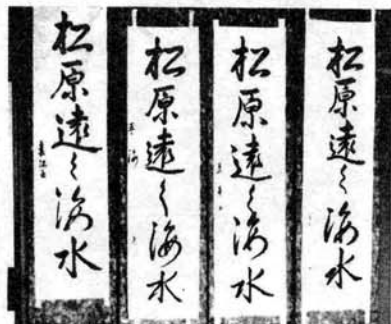 松原遠々海水
松原遠々海水
松原遠々海水
松原遠々海水